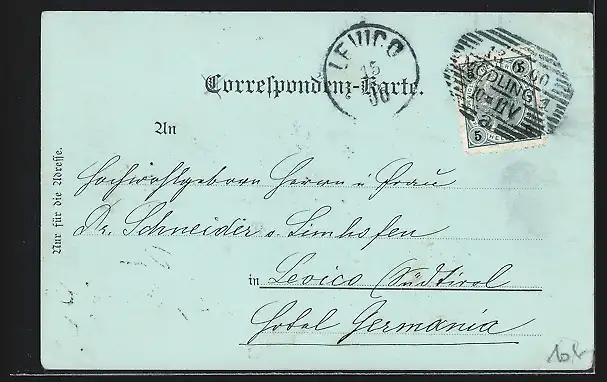 LEVICO
15
00
5
5
MÖDLING
Correspondenz-Karte.
An
Nur für die Adresse.
Hochwohlgeborn Herrn u Frau
Dr. Schneider v. Limhofen
in Levico (Südtirol
Hotel Germania